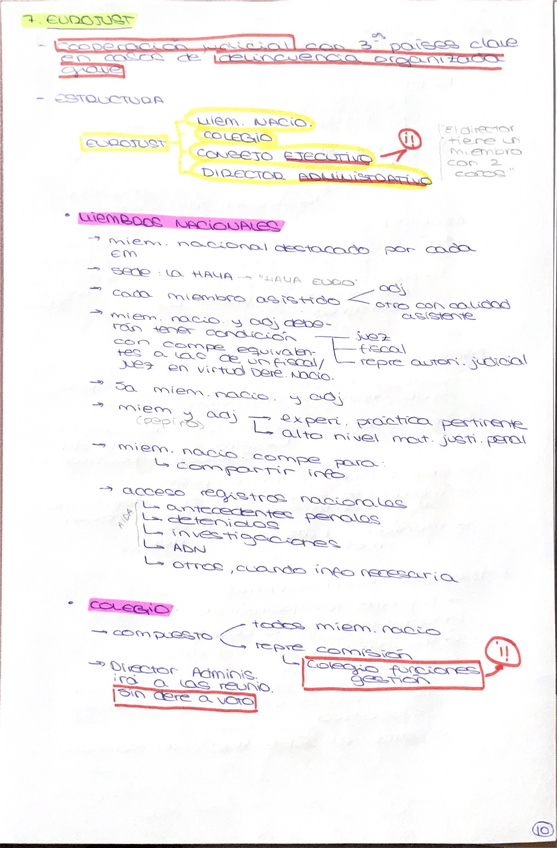 7. EUROJUST
- Cooperación judicial con 3os países clave
en casos de delincuencia organizada
grave
- ESTRUCTURA
EUROJUST
MIEM. NACIO.
COLEGIO
CONSEJO EJECUTIVO → !!
DIRECTOR ADMINISTRATIVO
"El director
tiene un
miembro
con 2
caras"
• MIEMBROS NACIONALES
→ miem. nacional destacado por cada
EM
→ sede: LA HAYA → "HAYA EURO"
→ cada miembro asistido
adj
otro con calidad
asistente
→ miem. nacio. y adj debe-
rán tener condición
con compe equivalen-
tes a las de un fiscal/
juez en virtud Dere. Nacio.
juez
fiscal
repre autori. judicial
→ 5a miem. nacio. y adj
→ miem y adj → experi. práctica pertinente
↳ alto nivel mat. justi. penal
→ miem. nacio. compe para:
↳ compartir info.
→ acceso registros nacionales
↳ antecedentes penales
↳ detenidos
↳ investigaciones
↳ ADN
↳ otros, cuando info necesaria
• COLEGIO
→ compuesto
todos miem. nacio
repre comisión
↳ Colegio funciones
gestión
!!
→ Director Adminis.
irá a las reunio.
sin dere a voto
10